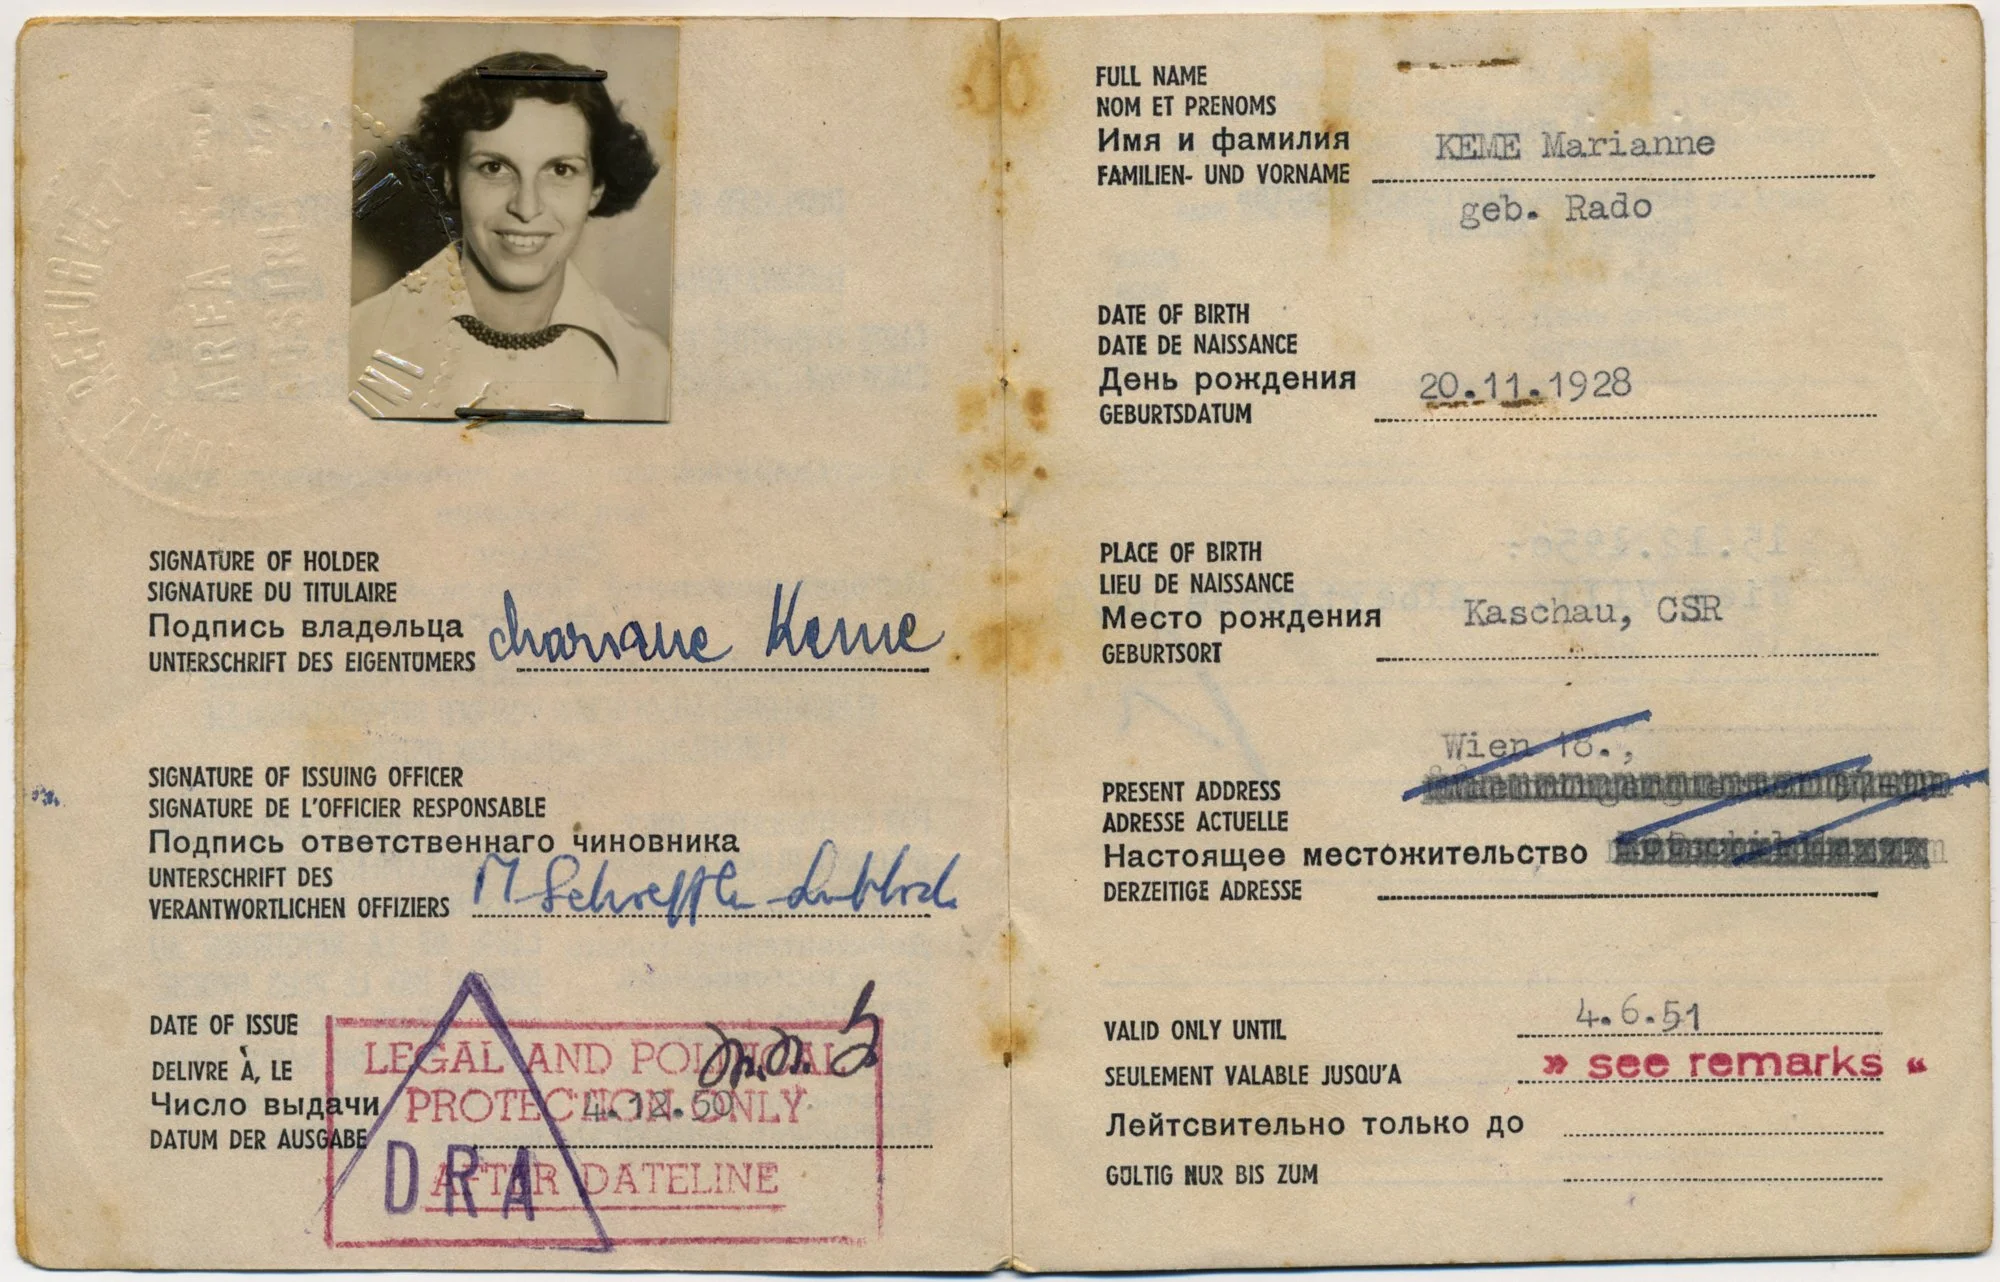 SIGNATURE OF HOLDER
SIGNATURE DU TITULAIRE
Подпись владельца
UNTERSCHRIFT DES EIGENTÜMERS
Marianne Keme
SIGNATURE OF ISSUING OFFICER
SIGNATURE DE L'OFFICIER RESPONSABLE
Подпись ответственнаго чиновника
UNTERSCHRIFT DES
VERANTWORTLICHEN OFFIZIERS
DATE OF ISSUE
DELIVRE À, LE
Число выдачи
DATUM DER AUSGABE
4.12.50
LEGAL AND POLITICAL
PROTECTION ONLY
AFTER DATELINE
DRA
FULL NAME
NOM ET PRENOMS
Имя и фамилия
FAMILIEN- UND VORNAME
KEME Marianne
geb. Rado
DATE OF BIRTH
DATE DE NAISSANCE
День рождения
GEBURTSDATUM
20.11.1928
PLACE OF BIRTH
LIEU DE NAISSANCE
Место рождения
GEBURTSORT
Kaschau, CSR
Wien 18.,
PRESENT ADDRESS
ADRESSE ACTUELLE
Настоящее местожительство
DERZEITIGE ADRESSE
VALID ONLY UNTIL
4.6.51
SEULEMENT VALABLE JUSQU'A
» see remarks «
Лейтсвительно только до
GÜLTIG NUR BIS ZUM